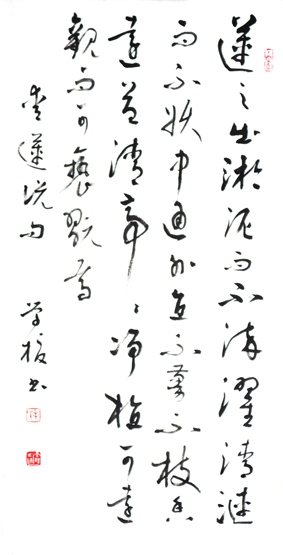 蓮之出淤泥而不染濯清漣
而不妖中通外直不蔓不枝香
遠益清亭〻淨植可遠
觀而可褻翫焉
愛蓮說句
学书